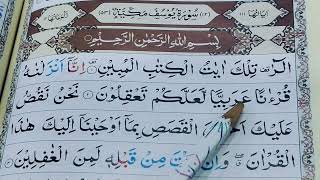 سُوْرَةُ يُوْسُفَ مَكِّيَّةٌ
بِسْمِ اللهِ الرَّحْمٰنِ الرَّحِيْمِ
الٓرٰ تِلْكَ اٰيٰتُ الْكِتٰبِ الْمُبِيْنِ اِنَّاۤ اَنْزَلْنٰهُ
قُرْءٰنًا عَرَبِيًّا لَّعَلَّكُمْ تَعْقِلُوْنَ نَحْنُ نَقُصُّ
عَلَيْكَ الْقَصَصِ بِمَاۤ اَوْحَيْنَاۤ اِلَيْكَ هٰذَا
الْقُرْاٰنَ مِنْ قَبْلِهٖ لَمِنَ الْغٰفِلِيْنَ